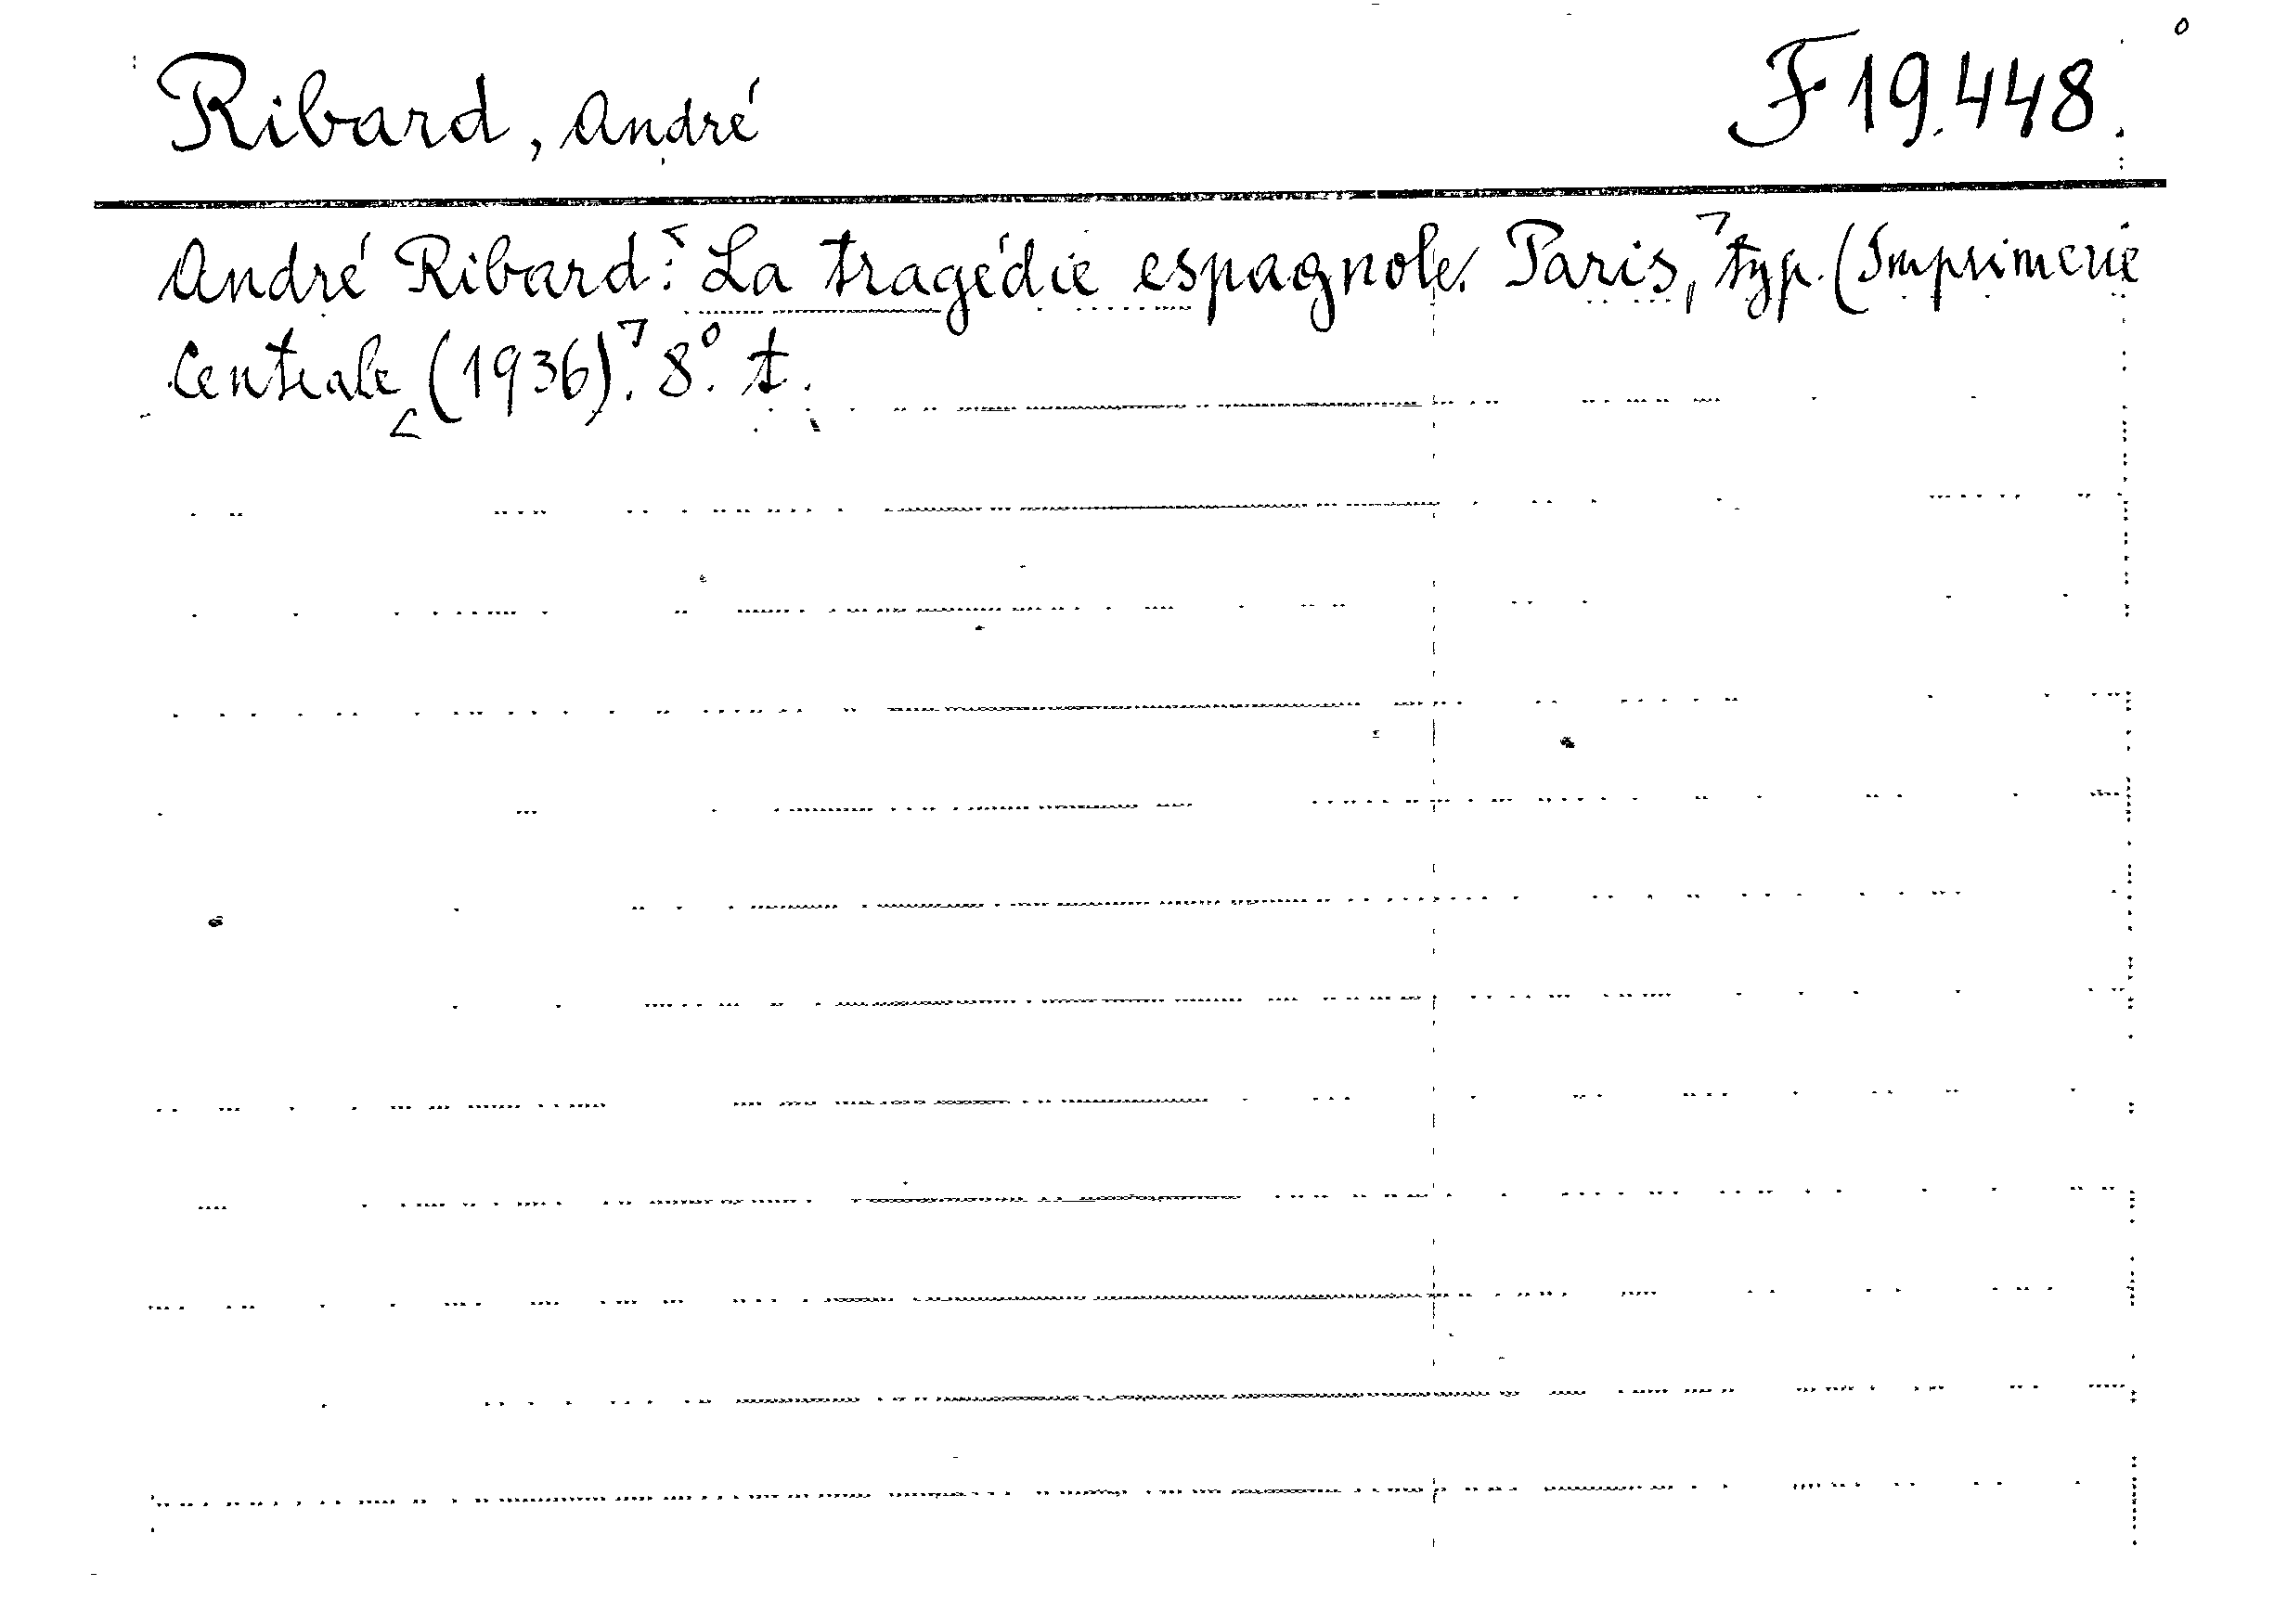 Ribard, André F 19.448.
André Ribard: La tragédie espagnole. Paris, typ. (Imprimerie
Centrale (1936). 8°. t.